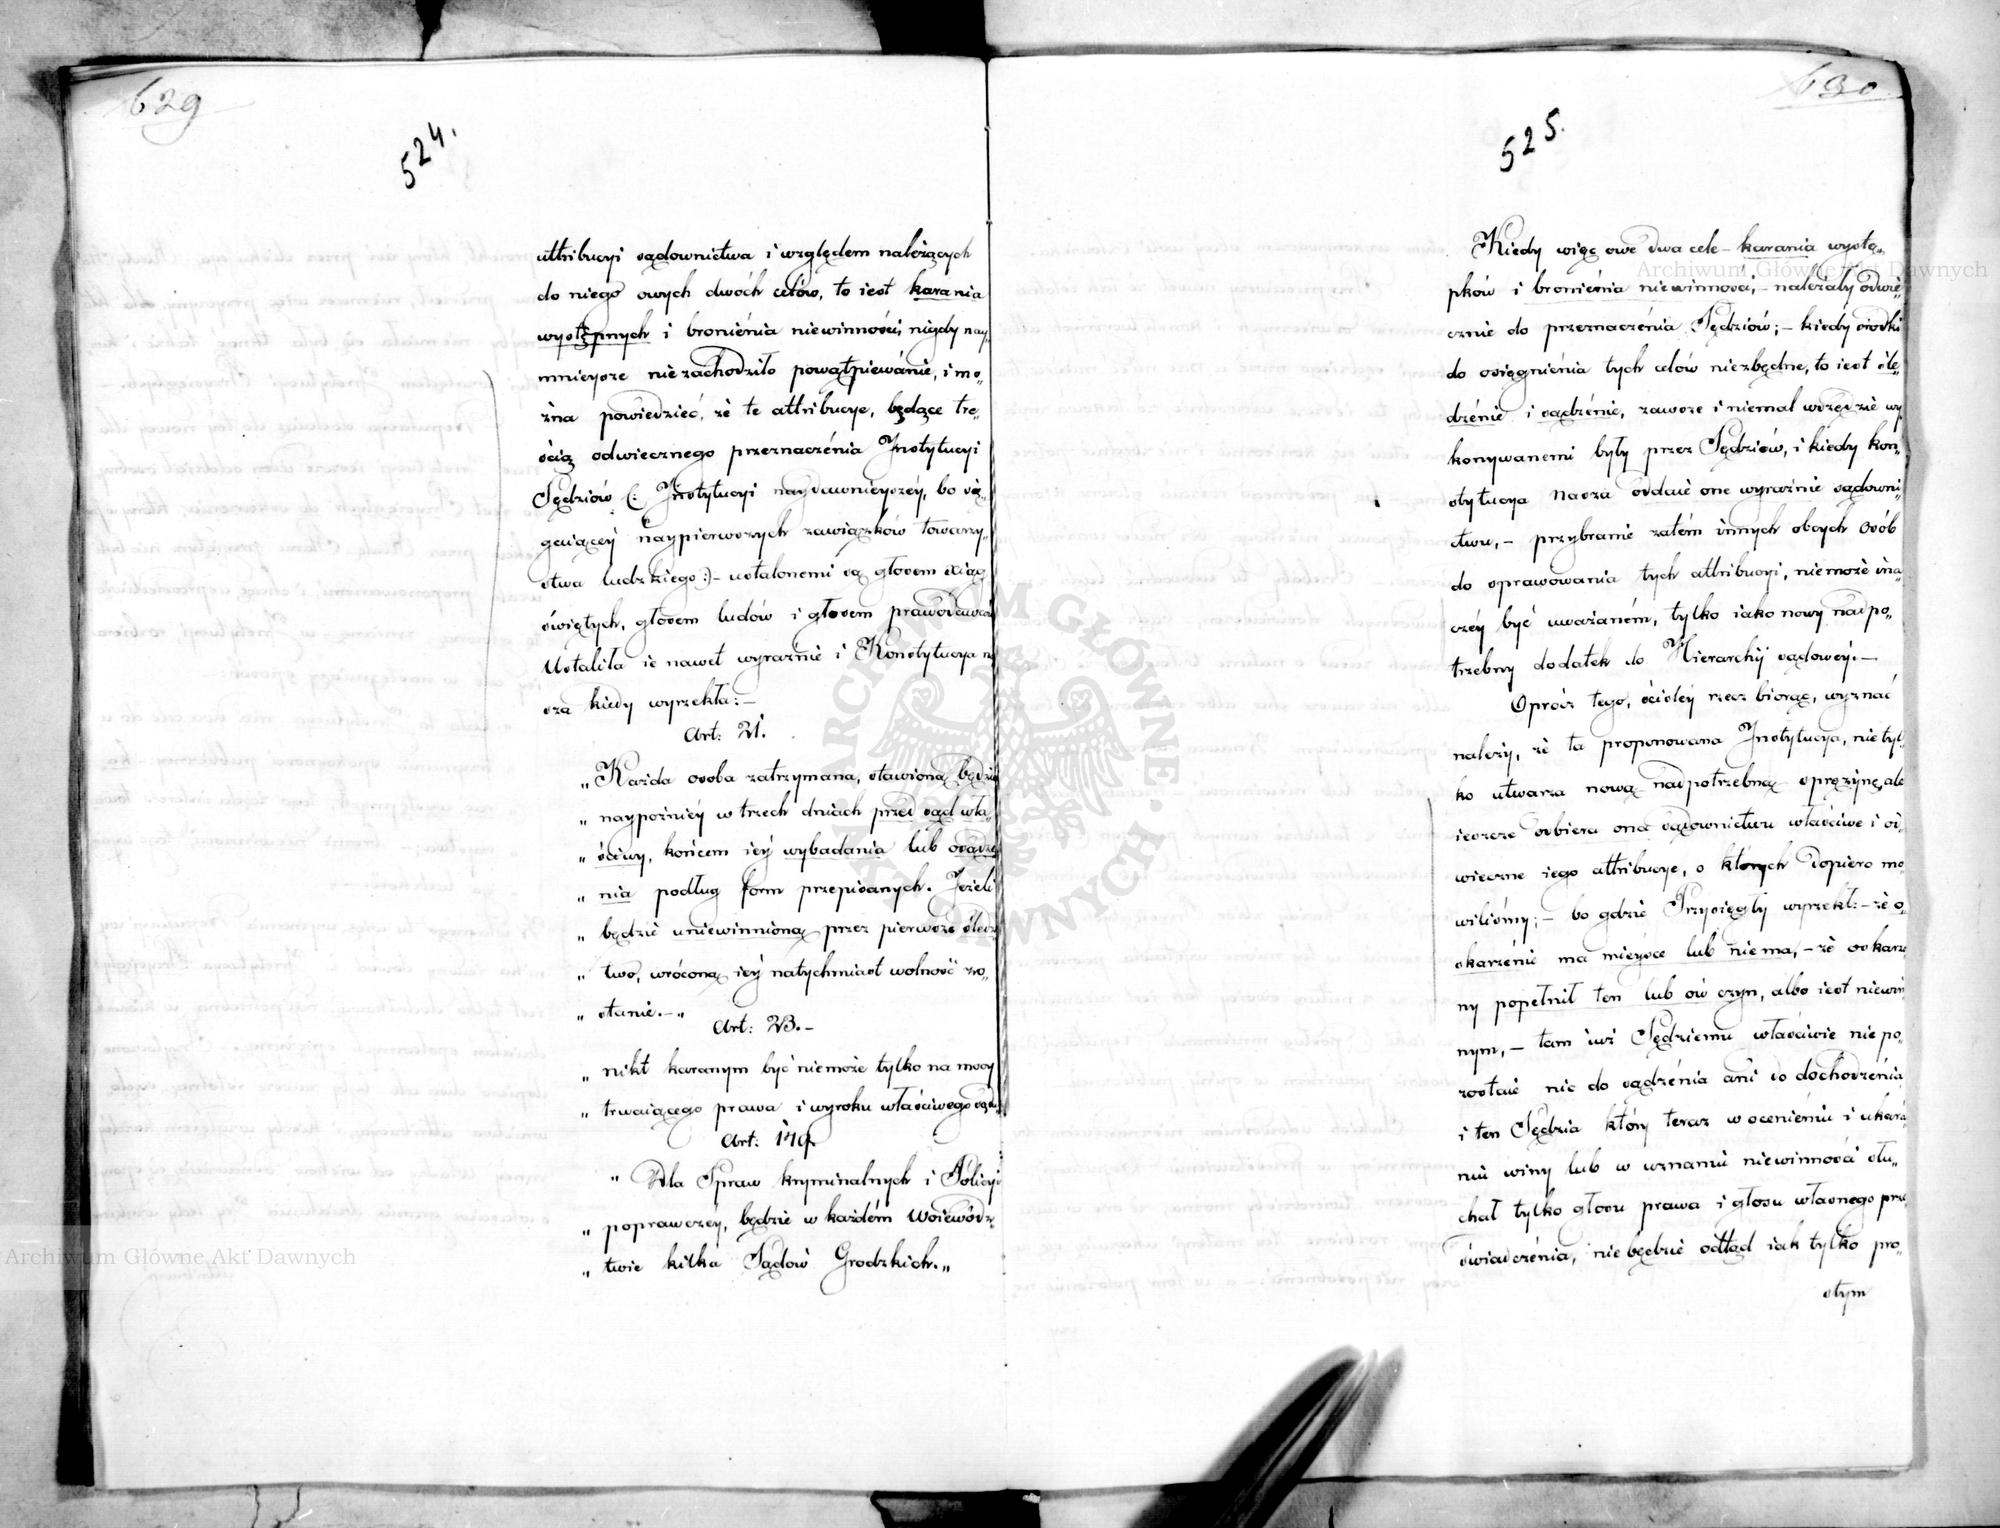 629
524.
attribucyi sądownictwa i względem należących
do niego owych dwóch celów, to iest karania
występnych i bronienia niewinności, nigdy nay„
mnieysze nie zachodziło powątpiewanie, i mo„
żna powiedzieć, że te attribucye, będące tre„
ścią odwiecznego przeznaczenia Instytucyi
Sędziów (: Instytucyi naydawnieyszéy, bo się„
gaiącéy naypierwszych zawiązków towarzy„
stwa ludzkiego :) – ustalonemi są głosem xiąg
świętych, głosem ludów i głosem prawodawców
Ustaliła ie nawet wyraźnie i Konstytucya na
sza kiedy wyrzekła: –
Art: 21.
„ Każda osoba zatrzymana, stawioną będzie
„ naypóźniéy w trzech dniach przed sąd wła„
„ ściwy, końcem iéy wybadania lub osądze
„ nia podług form przepisanych. Jeżeli
„ będzie uniewinnioną przez pierwsze śledz
„ two, wróconą iéy natychmiast wolność zo„
„ stanie. – „
Art: 23. –
„ nikt karanym być niemoże tylko na mocy
„ trwaiącego prawa i wyroku właściwego sądu
Art:
„ Dla Spraw kryminalnych i Policyi
„ poprawczéy, będzie w każdém Woiewódz
„ twie kilka Sądów Grodzkich. „
630
525.
Kiedy więc owe dwa cele – karania wystę„
pków i bronienia niewinności, – należały odwie
cznie do przeznaczenia Sędziów; – kiedy środki
do osiągnienia tych celów niezbędne, to iest śle„
dzénie i sądzénie, zawsze i niemal wszędzie wy
konywanemi były przez Sędziów, i kiedy kon„
stytucya nasza oddaie one wyraźnie sądowni„
ctwu, – przybranie zatém innych obcych osób
do sprawowania tych attribucyi, niemoże ina„
czéy być uważaném, tylko iako nowy nadpo„
trzebny dodatek do Hierarchij sądowéy. –
Oprócz tego, ściśléy rzecz biorąc, wyznać
należy, że ta proponowana Instytucya, nie tyl„
ko utwarza nową nadpotrzebną sprężynę, ale
ieszcze odbiera ona sądownictwu właściwe i od„
wieczne iego attribucye, o których dopiero mó
wiliśmy; – bo gdzie Przysięgły wyrzekł: – że o„
skarżenie ma mieysce lub niema, – że oskarżo
ny popełnił ten lub ów czyn, albo iest niewin
nym, – tam iuż Sędziemu właściwie niepo„
zostaie nic do sądzénia ani do dochodzénia
i ten Sędzia który teraz w ocenieniu i ukara
niu winy lub w uznaniu niewinności słu„
chał tylko głosu prawa i głosu własnego prze
świadczénia, niebędzie odtąd iak tylko pro„
stym
Archiwum Główne Akt Dawnych
Archiwum Główne Akt Dawnych
ARCHIWUM GŁÓWNE · AKT DAWNYCH ·